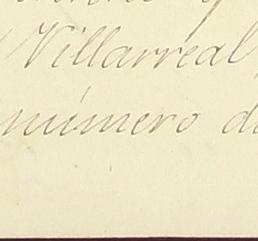 Villarreal
número d